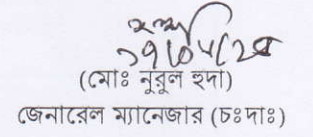 (মোঃ নুরুল হুদা)
জেনারেল ম্যানেজার (চঃদাঃ)